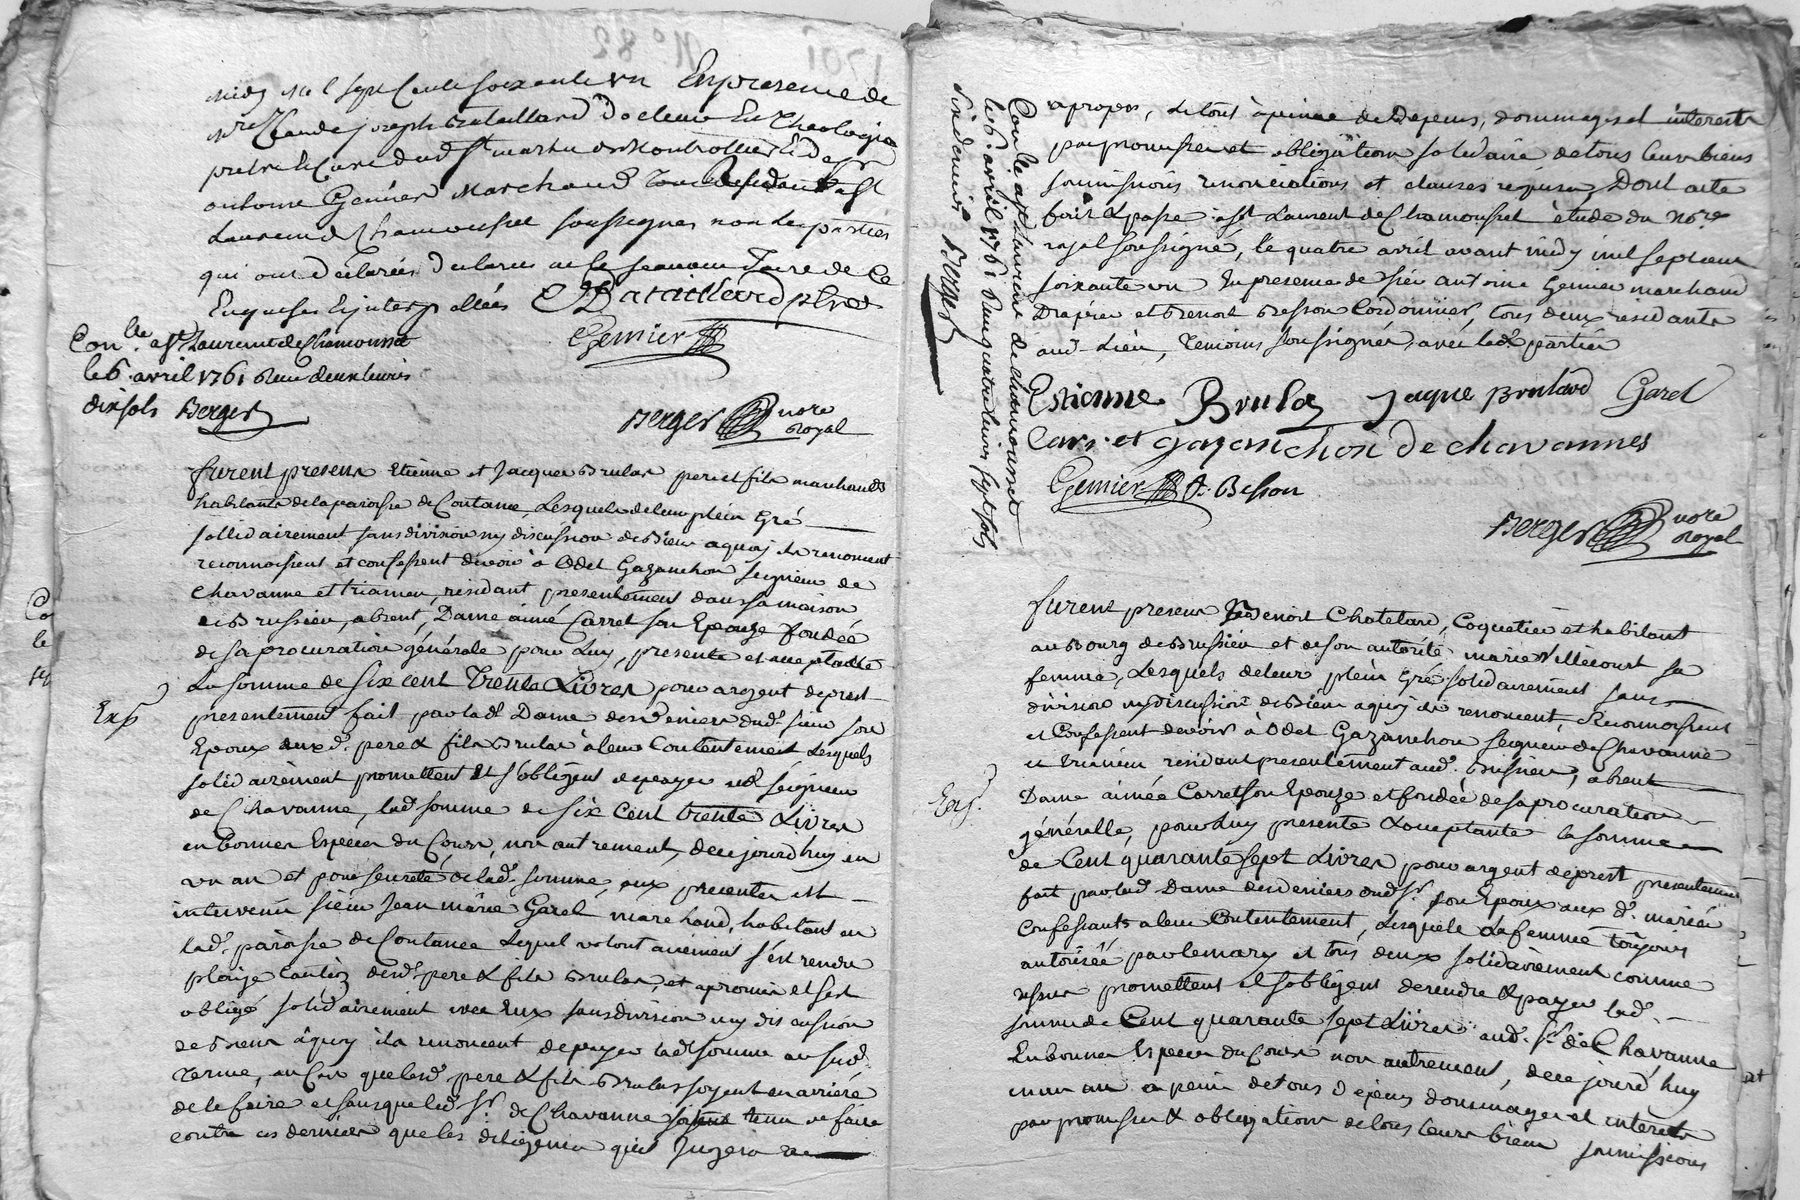 midy mil sept Cents soixante un En presence de
Mre Claude joseph Bataillard Docteur En Theologie
pretre et Curé dud. St martin et Sr
antoine Genier Marchand Tous Residants a St
Laurent de Chamousset soussignes non les parties
qui ont declarées De ce
Enquises et interpellées C J Bataillard ptre
Genier
Conlle a St Laurent de Chamousset
le 6 avril 1761 Reçu deux livres
dix sols Berger
Berger nore
Royal
furent presens Etienne et Jacques Brulas pere et fils marchands
habitants de la paroisse de Coutance, Lesquels de leur plein Gré
sollidairement sans division ny discussion de Biens a quoy ils renoncent
reconnoissent et confessent devoir à Odet Gazanchon seigneur de
Chavanne et triameu, residant presentement dans sa maison
de Brussieu, absent, Dame aimé Carret son Epouze fondée
de sa procuration générale pour Luy, presente et acceptante
La somme de six cent Trente Livres pour argent de prest
presentement fait par lad. Dame des deniers dud. sieur son
Epoux aux d. pere & fils Brulas à leur Contentement Lesquels
solidairement promettent Et s'obligent de payer aud. seigneur
de Chavanne, lad. somme de six Cent trente Livres
en bonnes Especes du Cours, non autrement, de ce jourd'huy en
un an et pour seureté de lad. somme, aux presentes est
intervenu sieur Jean marie Garel marchand, habitant en
lad. paroisse de Coutance Lequel volontairement s'est rendu
pleige caution desd. pere & fils Brulas, et a promis et s'est
obligé solidairement avec Eux sans division ny discussion
de Biens à quoy ils renoncent de payer lad. somme au sud.
terme, au Cas que lesd. pere & fils Brulas soyent en arriere
de le faire et sans que led. Sr. de Chavanne soit tenu de faire
contre ces derniers que les diligences qu'il Jugera a
Exp
apropos, Le tout à peine de Depens, dommages et interests
par promesse et obligation solidaire de tous leurs biens
soumissions renonciations et clauses requises, Dont acte
fait & passé a St Laurent de Chamousset étude du Nore
royal soussigné, le quatre avril avant midy mil sept cent
soixante un En presence de Sieur antoine Genier marchand
Drapier et Benoit Besson Cordonnier, tous deux residants
aud. Lieu, Temoins soussignés avec lesd. parties
Etienne Brulas Jaque Brulard Garel
Caré et gazanchon de chavannes
Genier B. Besson
Berger nore
Royal
Conlle a St Laurent de chamousset
le 6. avril 1761 Reçu quatre livres sept sols
six deniers Berger
furent presens Benoit Chatelard, Coquetier et habitant
au Bourg de Brussieu et de son autorité marie Villecourt sa
femme, Lesquels de leur plein Gré solidairement sans
division ny discussion de Biens a quoy ils renoncent, Reconnoissent
et Confessent devoir à Odet Gazanchon seigneur de Chavanne
et trameu residant presentement aud. Brussieu, absent
Dame aimée Carret son Epouze et fondée de sa procuration
générale, pour luy presente & acceptante la somme
de Cent quarante sept Livres pour argent de prest presentement
fait par lad. Dame des deniers dud. Sr. son Epoux aux d. mariés
Confessants a leur Contentement, Lesquels La femme toujours
autorisée par le mary et tous deux solidairement comme
dessus promettent et s'obligent de rendre & payer lad.
somme de Cent quarante sept Livres aud. Sr. de Chavanne
En bonnes Especes du Cours non autrement, de ce jourd'huy
en un an a peine de tous Depens dommages et interets
par promesse & obligation de tous leurs biens soumissions
Exp.